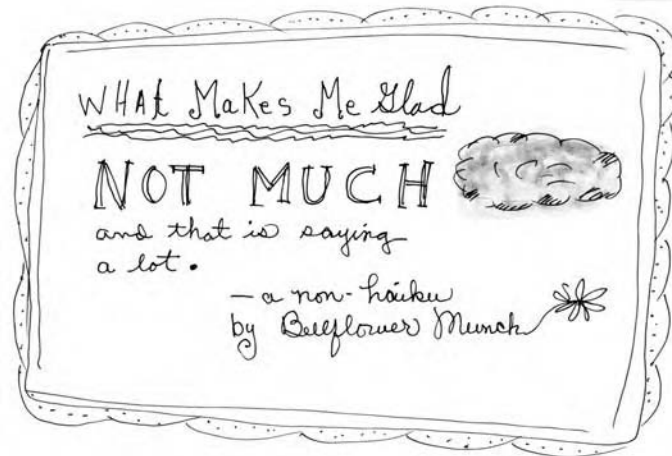 WHAt MaKes Me Glad
NOT MUCH
and that is saying
a lot.
— a non-haiku
by Bellflower Munch